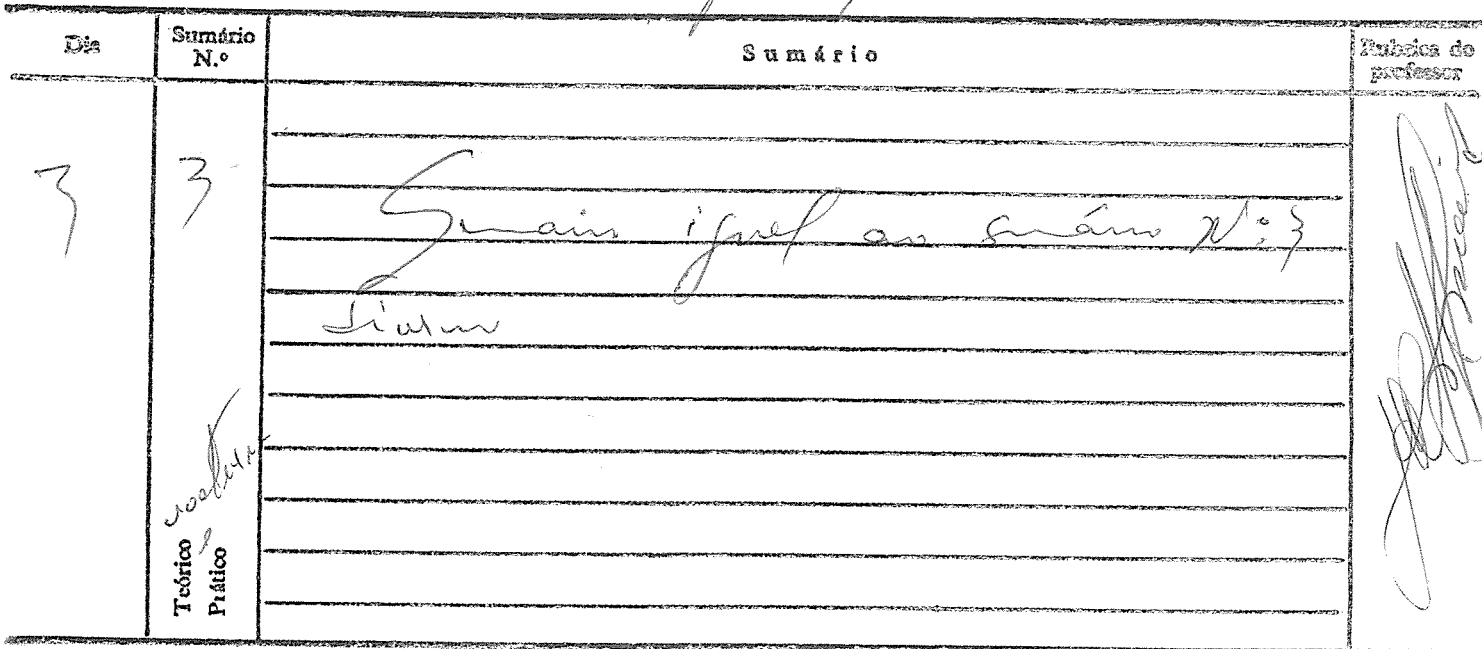 Dia
Sumário N.º
Sumário
Rubrica do professor
3
3
Sumário igual ao sumário Nº 3
diurno
Teórico
Prático